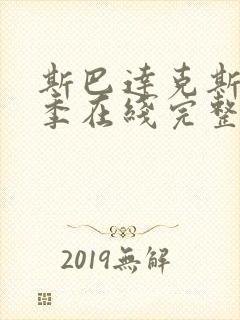 斯巴達克斯
季在綫完整
2019無解